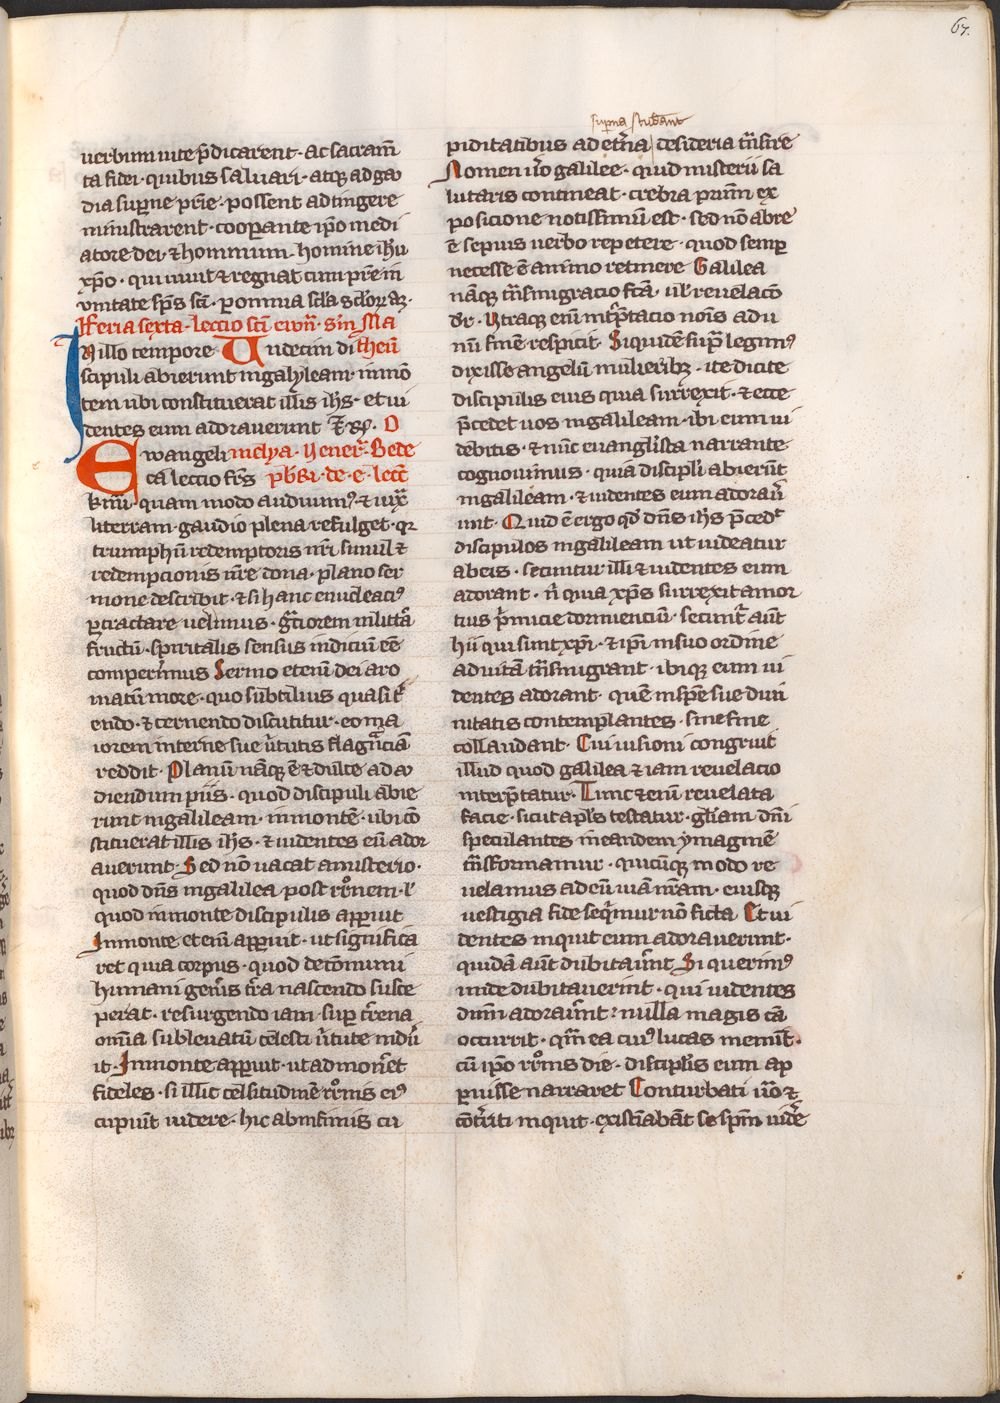 67.
uerbum uite p̄dicarent · ac sacram̄
ta fidei · quibus saluari · atq; ad gau
dia superne pr̄ie · possent adtingere
ministrarent · cooperante ip̄o medi
atore dei · ⁊ hominum · homine ih̄u
xp̄o · qui uiuit ⁊ regnat cum pr̄e in
vnitate sp̄s sc̄i · per omnia sc̄la sc̄lorꝝ ·
Feria sexta · leccio sc̄i ew̄n̄ · s̄m Ma
In illo tempore Vndecim di theū
scipuli abierunt in galyleam · in mon̄
tem ubi constituerat illis ih̄s · et ui
dentes eum adorauerunt
Ewangeli melya · Uener̄ · Bede
ca leccio fr̄s pb̄ri · de · e · lecc̄
km̄i · quam modo audiuim⁹ · ⁊ iux̄
litterram · gaudio plena refulget · qr
triumphū redemptoris nr̄i simul ⁊
redempcionis nr̄e dona · plano ser
mone describit · ⁊ si hanc enucleaci⁹
ꝑtractare uelimus · gr̄ciorem in litt̄a
fructū · spiritalis sensus indiciū eē
comperimus Sermo etenim dei aro
matū more · quo subtilius quasi t̄
endo · ⁊ cernendo discutitur · eo ma
iorem interne sue ūtutis flagr̄nciā
reddit · Planū nāq; ē ⁊ dulce ad au
diendum piis · quod discipuli abie
runt in galileam · in montē · ubi cō
stituerat illis ih̄s · ⁊ uidentes eū ador
auerunt · Sed nō uacat a misterio ·
quod dn̄s in galilea post rr̄onem · l̄
quod in monte discipulis apparuit
In monte etenī apparuit · ut significa
ret quia corpus · quod de cōmuni
humani gen̄is t̄ra nascendo susce
perat · resurgendo iam · suꝑ t̄rena
omīa subleuatū celesti ūtute indū
it · In monte apparuit · ut admon̄et
fideles · si illic celsitudinē rr̄onis ei⁹
cupiūt uidere · hic ab infimis cu
superna studeant
piditatibus ad et̄na desideria tn̄sire
Nomen ūo galilee · quid misterii sa
lutaris contineat · crebra prūm ex
posicione notissimū est · sed nō abre
ē sepius uerbo repetere · quod semꝑ
necesse ē animo retinere Galilea
nāq; tn̄smigracio fc̄a · ul̄ reuelacō
dr̄ · Utraq; enī int̄p̄tacio nōis ad u
nū finē respicit · Siquidē sup̄ legim⁹
dixisse angelū mulierib; · ite dicite
discipulis eius quia surrexit · ⁊ ecce
p̄cedet uos in galileam · ibi eum ui
debitis · ⁊ nūc euanglīsta narrante
cognouimus · quia discipl̄i abierūt
in galileam · ⁊ uidentes eum adorauer̄
unt · Quid ē ergo qd̄ dn̄s ih̄s p̄ced̄
discipulos in galileam ut uideatur
ab eis · secuntur illi ⁊ uidentes eum
adorant · n̄ quia xp̄s surrexit a mor
tuis p̄micie dormienciū · secunt̄ aūt
hii qui sunt xp̄i · ⁊ ip̄i in suo ordine
ad uitā tn̄smigrant · ibiq; eum ui
dentes adorant · quē in sp̄e sue diui
nitatis contemplantes · sine fine
collaudant · Cui uisioni congruit
illud quod galilea ⁊ iam reuelacio
interp̄tatur · Tunc etenī reuelata
facie · sicut apl̄s testatur · gl̄iam dn̄i
speculantes in eandem ymaginē
tn̄sformamur · quicūq; modo re
uelamus ad eū uiā nr̄am · eiusq;
uestigia fide seq̄mur nō ficta Et ui
dentes inquit eum adorauerunt ·
quidā aūt dubitauer̄unt Si querim⁹
unde dubitauerint · qui uidentes
dn̄m adorauer̄ūt · nulla magis cā
occurrit · qm̄ ea cui⁹ lucas memīt ·
cū ip̄o rr̄onis die · discipl̄is eum ap
paruisse narraret Conturbati ūo ⁊
cōt̄riti inquit · existiabāt se sp̄m uidē